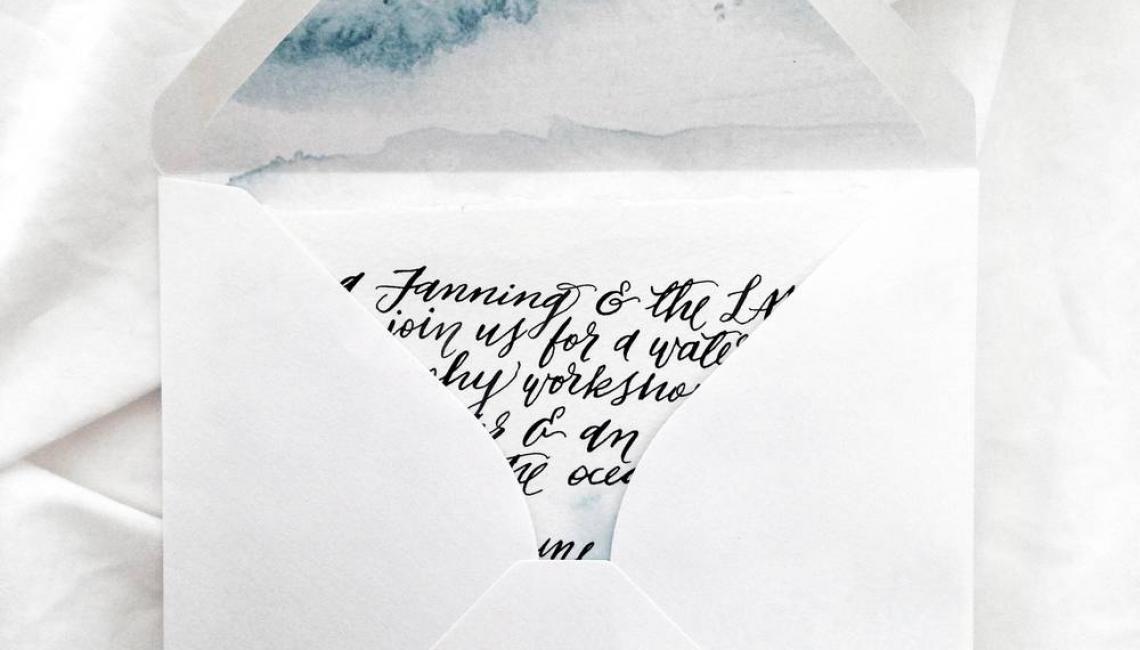 Janning & the LA
join us for a wate
hy worksho
& an
the ocea
une